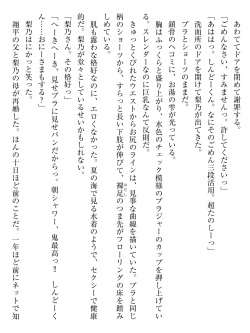 あわててドアを閉めて謝罪する。
「ごめんなさい、すみませんっ、許してくださいっっ」
「あははっ。しんどーくん。なにそのごめん三段活用　超たのしーっ」
洗面所のドアを開けて梨乃が出てきた。
ブラとショーツのままだ。
鎖骨のヘコミに、お湯の雫が光っている。
胸はふっくらと盛り上がり、水色のチェック模様のブラジャーのカップを押し上げている。スレンダーなのに巨乳なんて反則だ。
きゅっとくびれたウエストからお尻のラインは、見事な曲線を描いていた。ブラと同じ柄のショーツから、すらっと長い下肢が伸びて、裸足のつま先がフローリングの床を踏みしめている。
肌も露わな格好なのに、エロくなかった。夏の海で見る水着のようで、セクシーで健康的だ。梨乃が堂々としているせいかもしれない。
「梨乃さん。その格好っ」
「へーきへーき。見せブラに見せパンだからっっ。朝シャワー、鬼最高っ!!　しんどーくん、おにーさまもする？」
梨乃はにかっと笑った。
翔平の父と梨乃の母が再婚した。ほんの十日ほど前のことだ。一年ほど前にネットで知